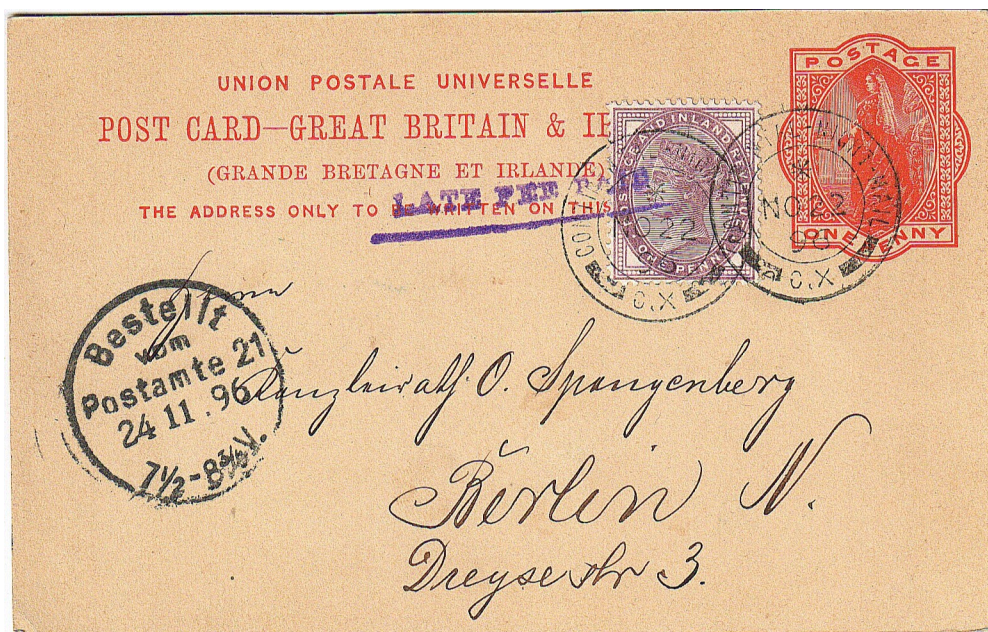 UNION POSTALE UNIVERSELLE
POST CARD—GREAT BRITAIN &
(GRANDE BRETAGNE ET IRLANDE)
THE ADDRESS ONLY TO WRITTEN ON THIS
LATE FEE PAID
POSTAGE
ONE PENNY
POSTAGE AND INLAND REVENUE
ONE PENNY
NO 22
C.X
NO 22
96
C.X
Bestellt
vom
Postamte 21
24 11.96
7½-8¾V.
Herrn
Kanzleirath O. Spangenberg
Berlin N.
Dreysestr 3.